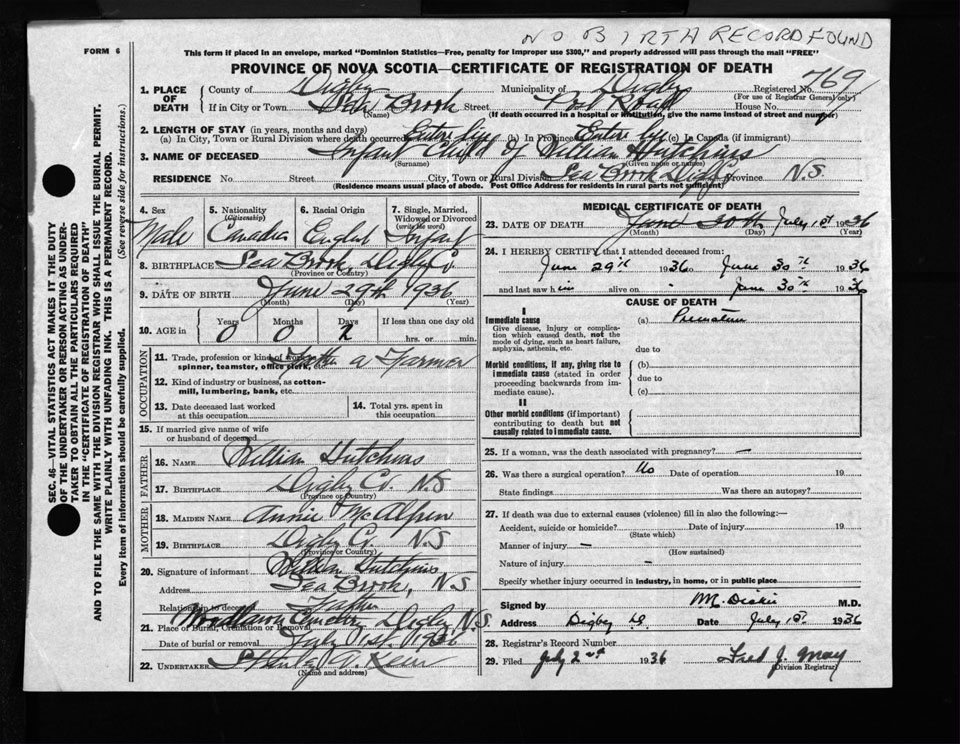 NO BIRTH RECORD FOUND
FORM 6
This form if placed in an envelope, marked "Dominion Statistics—Free, penalty for improper use $300," and properly addressed will pass through the mail "FREE"
PROVINCE OF NOVA SCOTIA—CERTIFICATE OF REGISTRATION OF DEATH
1. PLACE OF DEATH
County of Digby Municipality of Digby Registered No. 769
(For use of Registrar General only)
If in City or Town Sea Brook Street Post Road House No.
(Name) (If death occurred in a hospital or institution, give the name instead of street and number)
2. LENGTH OF STAY (in years, months and days)
(a) In City, Town or Rural Division where death occurred Entire life (b) In Province Entire life (c) In Canada (if immigrant)
3. NAME OF DECEASED Infant Child of William Hutchins
(Surname) (Given name or names)
RESIDENCE No. Street City, Town or Rural Division Sea Brook Digby Province N.S.
(Residence means usual place of abode. Post Office Address for residents in rural parts not sufficient)
4. Sex Male
5. Nationality (Citizenship) Canadian
6. Racial Origin English
7. Single, Married, Widowed or Divorced (write the word) Infant
8. BIRTHPLACE Sea Brook, Digby Co
(Province or Country)
9. DATE OF BIRTH June 29th 1936
(Month) (Day) (Year)
10. AGE in Years Months Days If less than one day old
0 0 2 hrs. or min.
OCCUPATION
11. Trade, profession or kind of work, as spinner, teamster, office clerk, etc. Father a Farmer
12. Kind of industry or business, as cotton-mill, lumbering, bank, etc.
13. Date deceased last worked at this occupation
14. Total yrs. spent in this occupation
15. If married give name of wife or husband of deceased
FATHER
16. NAME William Hutchins
17. BIRTHPLACE Digby Co. N.S
(Province or Country)
MOTHER
18. MAIDEN NAME Annie
19. BIRTHPLACE Digby Co. N.S
(Province or Country)
20. Signature of informant William Hutchins
Address Sea Brook, N.S
Relationship to deceased Father
21. Place of Burial, Cremation or Removal Woodlawn Digby N.S.
Date of burial or removal July 1st, 1936
22. UNDERTAKER
(Name and address)
MEDICAL CERTIFICATE OF DEATH
23. DATE OF DEATH June 30th July 1st 1936
(Month) (Day) (Year)
24. I HEREBY CERTIFY that I attended deceased from:
June 29th 1936 to June 30th 1936
and last saw him alive on " June 30th 1936
CAUSE OF DEATH
I
Immediate cause (a) Premature
Give disease, injury or complication which caused death, not the mode of dying, such as heart failure, asphyxia, asthenia, etc.
due to
Morbid conditions, if any, giving rise to immediate cause (stated in order proceeding backwards from immediate cause).
(b)
due to
(c)
II
Other morbid conditions (if important) contributing to death but not causally related to immediate cause.
25. If a woman, was the death associated with pregnancy? —
26. Was there a surgical operation? No Date of operation 19
State findings Was there an autopsy?
27. If death was due to external causes (violence) fill in also the following:—
Accident, suicide or homicide? Date of injury 19
(State which)
Manner of injury —
(How sustained)
Nature of injury —
Specify whether injury occurred in industry, in home, or in public place
Signed by M.D.
Address Digby N.S. Date July 1st 1936
28. Registrar's Record Number
29. Filed July 2nd 1936 Fred J. May
(Division Registrar)
SEC. 46—VITAL STATISTICS ACT MAKES IT THE DUTY
OF THE UNDERTAKER OR PERSON ACTING AS UNDER-
TAKER TO OBTAIN ALL THE PARTICULARS REQUIRED
IN THE "CERTIFICATE OF REGISTRATION OF DEATH"
AND TO FILE THE SAME WITH THE DIVISION REGISTRAR WHO SHALL ISSUE THE BURIAL PERMIT.
WRITE PLAINLY WITH UNFADING INK. THIS IS A PERMANENT RECORD.
Every item of information should be carefully supplied. (See reverse side for instructions.)